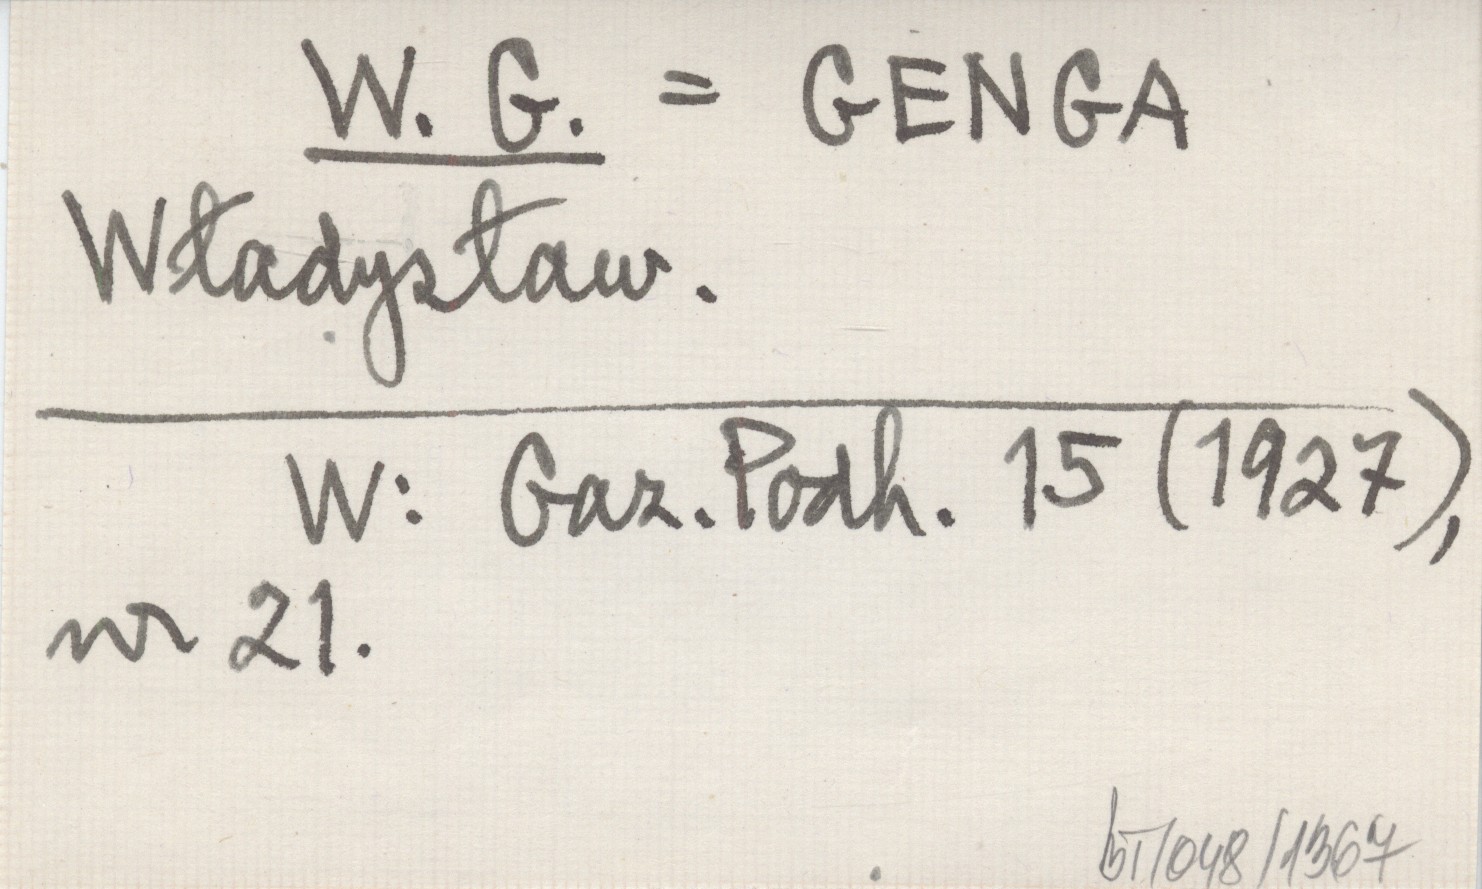 W. G. = GENGA
Władysław.
W: Gaz. Podh. 15 (1927),
nr 21.
bT/048/1367